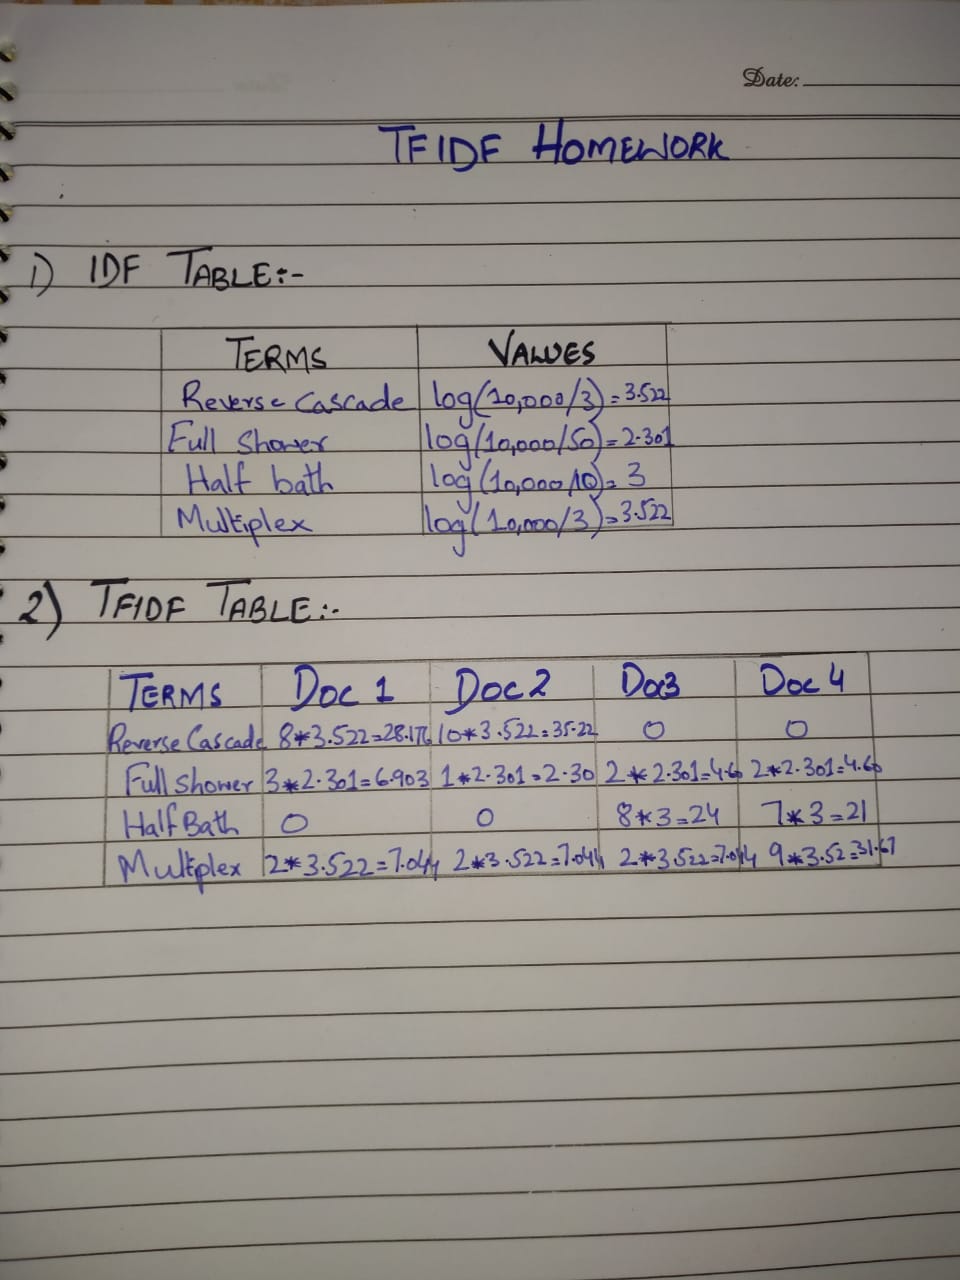 Date:
TFIDF HOMEWORK
1) IDF TABLE:-
TERMS VALUES
Reverse Cascade log(10,000/3)=3.522
Full Shower log(10,000/50)=2.301
Half bath log(10,000/10)=3
Multiplex log(10,000/3)=3.522
2) TFIDF TABLE:-
TERMS Doc 1 Doc 2 Doc3 Doc 4
Reverse Cascade 8*3.522=28.176 10*3.522=35.22 0 0
Full Shower 3*2.301=6.903 1*2.301=2.30 2*2.301=4.60 2*2.301=4.60
Half Bath 0 0 8*3=24 7*3=21
Multiplex 2*3.522=7.044 2*3.522=7.044 2*3.522=7.044 9*3.52=31.67